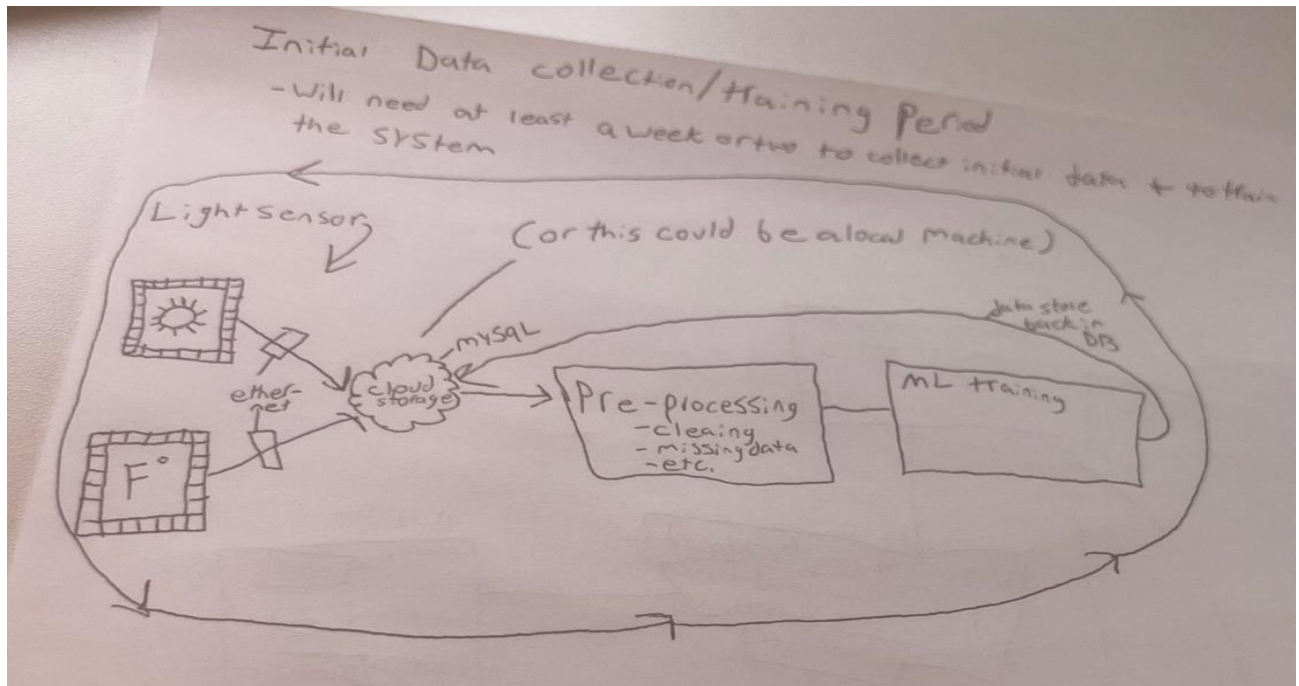 Initial Data collection/training Period
-Will need at least a week or two to collect initial data + to train
the system
Light sensor
(or this could be a local machine)
mysQL
data store
back in
DB
cloud
storage
ether-
net
F°
Pre-processing
-cleaing
- missing data
-etc.
ML training